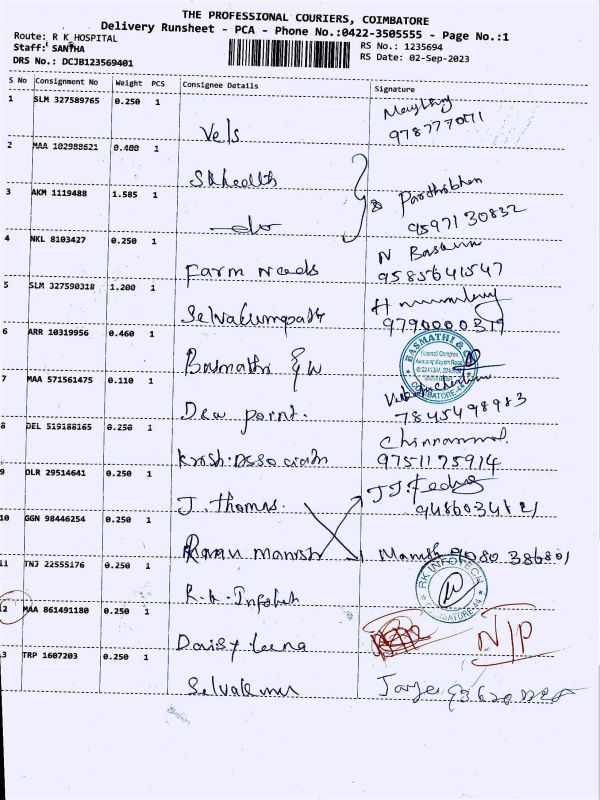 THE PROFESSIONAL COURIERS, COIMBATORE
Delivery Runsheet - PCA - Phone No.:0422-3505555 - Page No.:1
Route: R K HOSPITAL
Staff: SANTHA
RS No.: 1235694
DRS No.: DCJB123569401
RS Date: 02-Sep-2023
S No Consignment No Weight PCS Consignee Details Signature
1 SLM 327589765 0.250 1
Vels
9787777071
2 MAA 102988621 0.400 1
SR health
3 AKM 1119488 1.585 1
-do-
9597130832
4 NKL 8103427 0.250 1
Farm needs
9585641547
5 SLM 327590318 1.200 1
9790000319
6 ARR 10319956 0.460 1
BASMATHI & CO
COIMBATORE-44
7 MAA 571561475 0.110 1
Dew point.
7845498983
8 DEL 519188165 0.250 1
Chinnammal.
9751175914
9 DLR 29514641 0.250 1
J. thomas.
10 GGN 98446254 0.250 1
Manish
11 TNJ 22555176 0.250 1
R.K. Infotech
RK INFOTECH
12 MAA 861491180 0.250 1
Daisy leena
N/P
13 TRP 1607203 0.250 1
Selvakumar